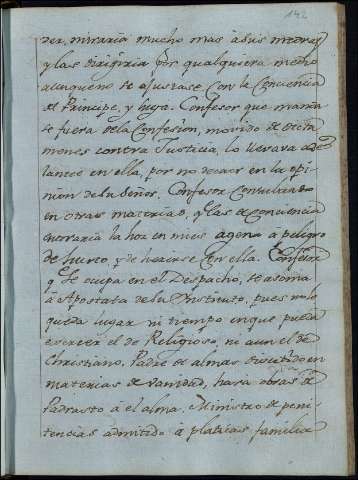 142
der, miraria mucho mas à sus medras
y las dirigiria por qualquiera medio
aunque no se ajustase con la Conciencia
del Principe, y huya. Confesor que mania
se fuera dela Confesion, movido de dicta
menes contra Justicia, lo llevara ade
lante en ella, por no decaer en la opi
nion de su Señor. Confesor Consultado
en otras materias, y las de conciencia
entraria la hoz en mies agena à peligro
de hurto, y de herirse con ella. Confesor
q se ocupa en el Despacho, se asoma
à Apostata de su Instituto, pues no le
queda lugar ni tiempo en que pueda
exercer el de Religioso, ni aun el de
Christiano. Padre de almas divertido en
materias de vanidad, hara obras de
Padrasto à el alma. Ministro de peni
tencias admitido à platicas familia